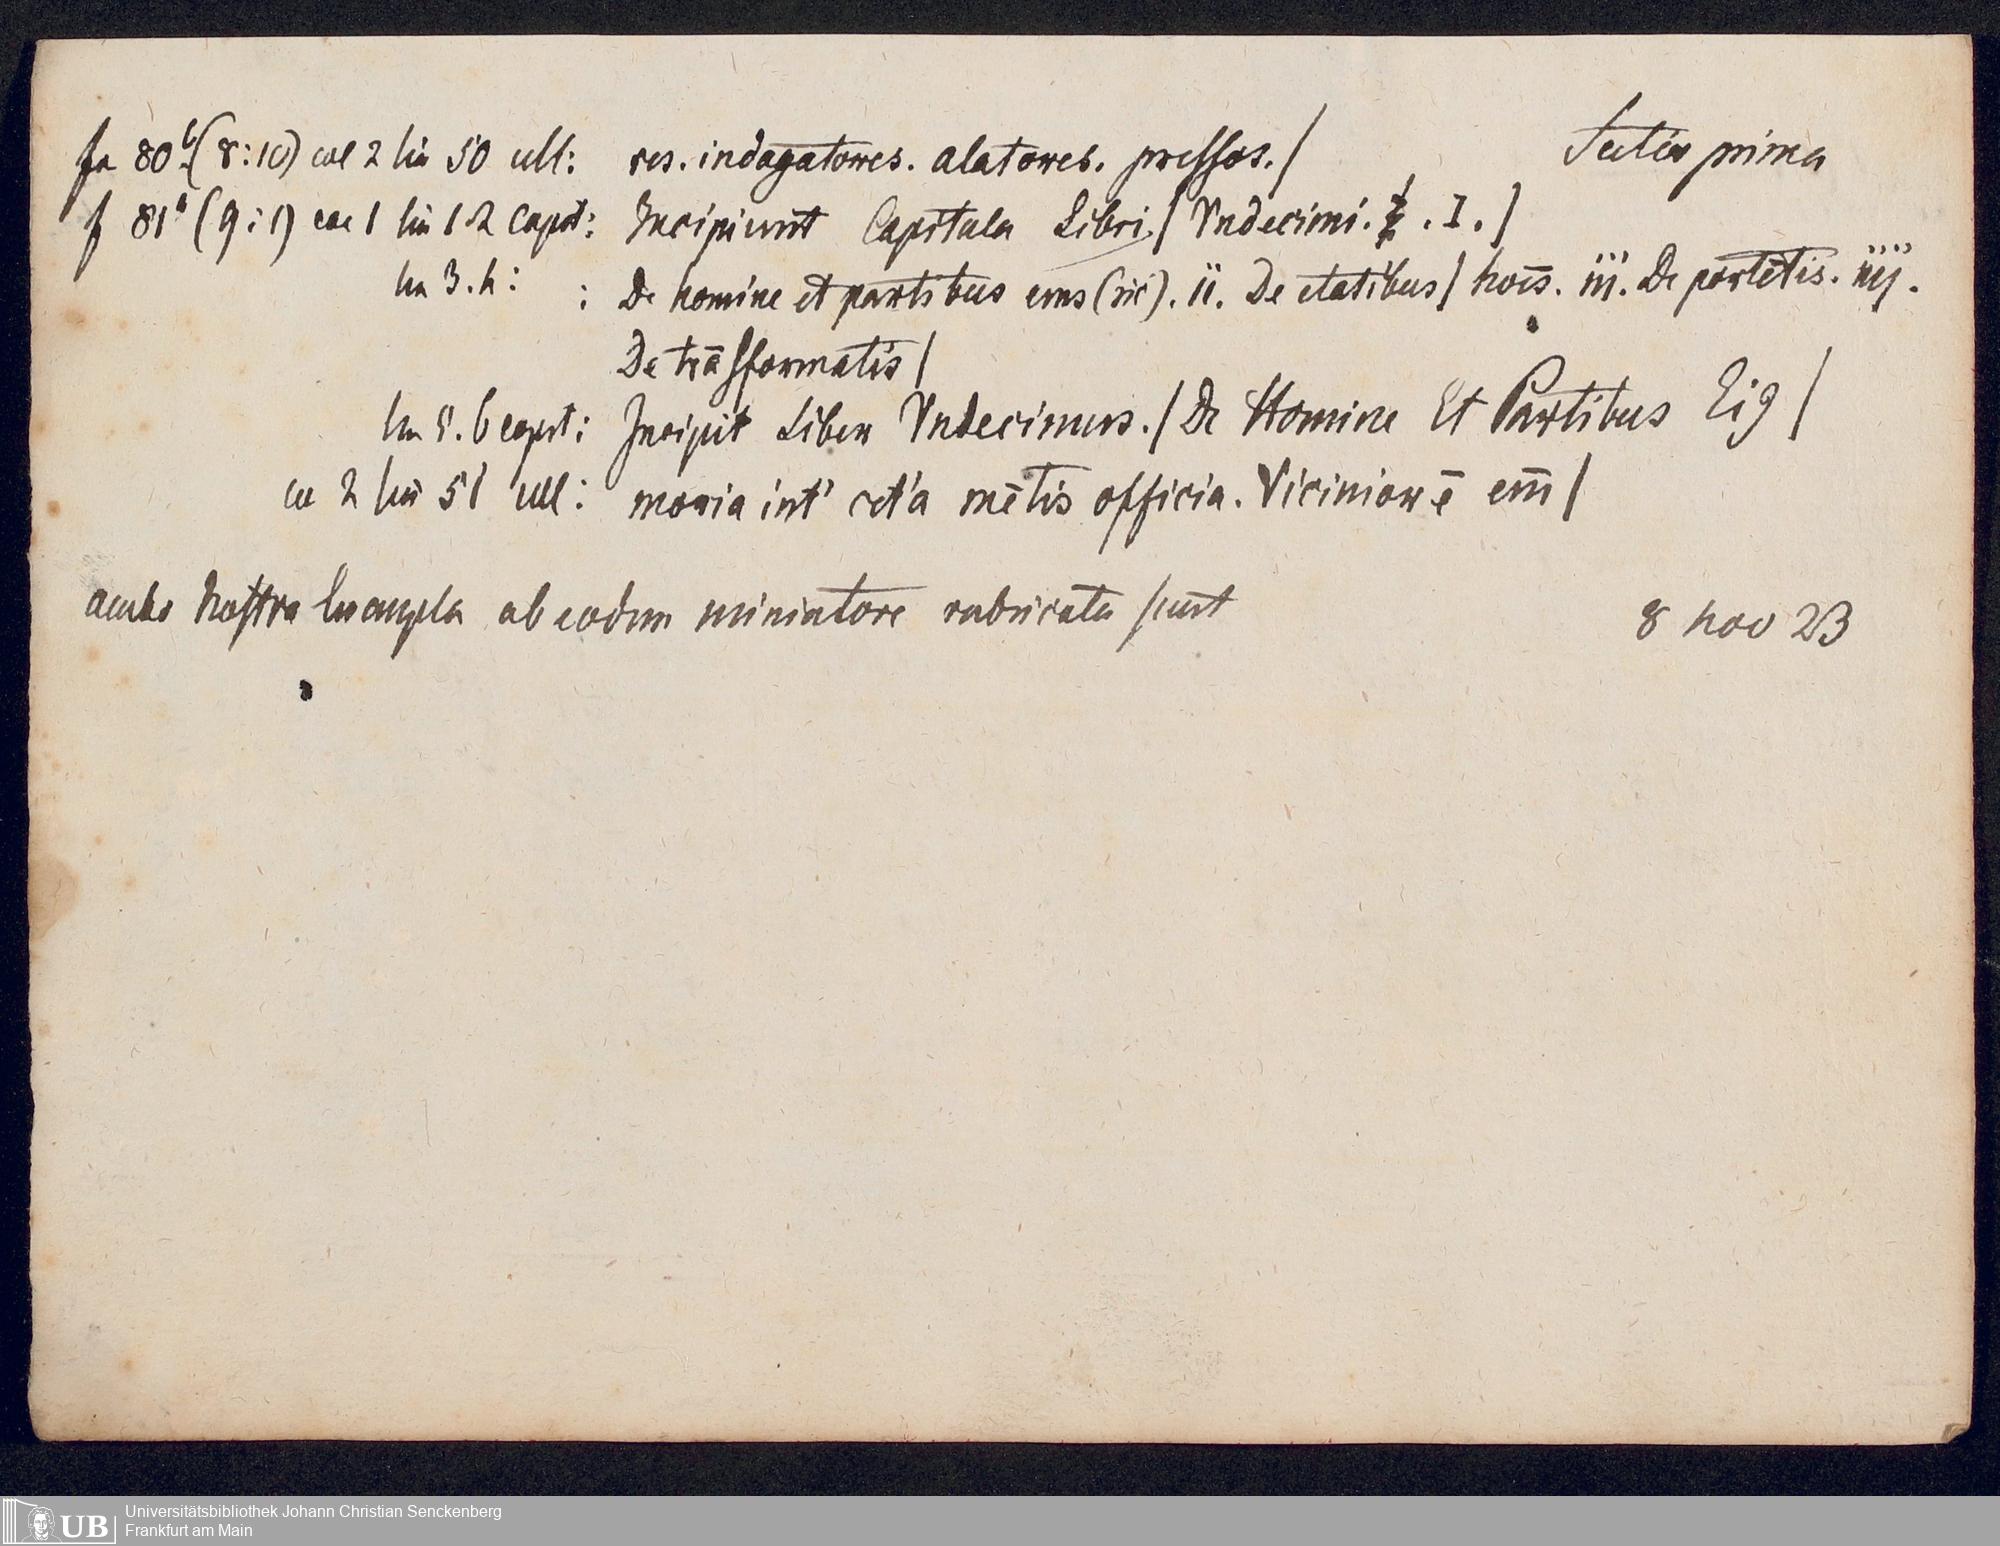 fa 80b (8:10) col 2 lin 50 ult: res. indagatores. alatores. pressos. / Sectio prima
f 81a (9:1) col 1 lin 1-2 capit: Incipiunt Capitula Libri / Vndecimi. . I. /
lin 3.4: : De homine et partibus eius (sic). ii. De etatibus / hoīs. iii. De portētis. iiij.
De trāsformatis /
lin 5.6 capit: Incipit Liber Vndecimus. / De Homine Et Partibus Ei9 /
col 2 lin 51 ult: moria int' cet'a mētis officia. Vicinior ē em̄ /
ambo nostra Exempla ab eodem miniatore rubricata sunt 8 nov 23
Universitätsbibliothek Johann Christian Senckenberg
UB Frankfurt am Main